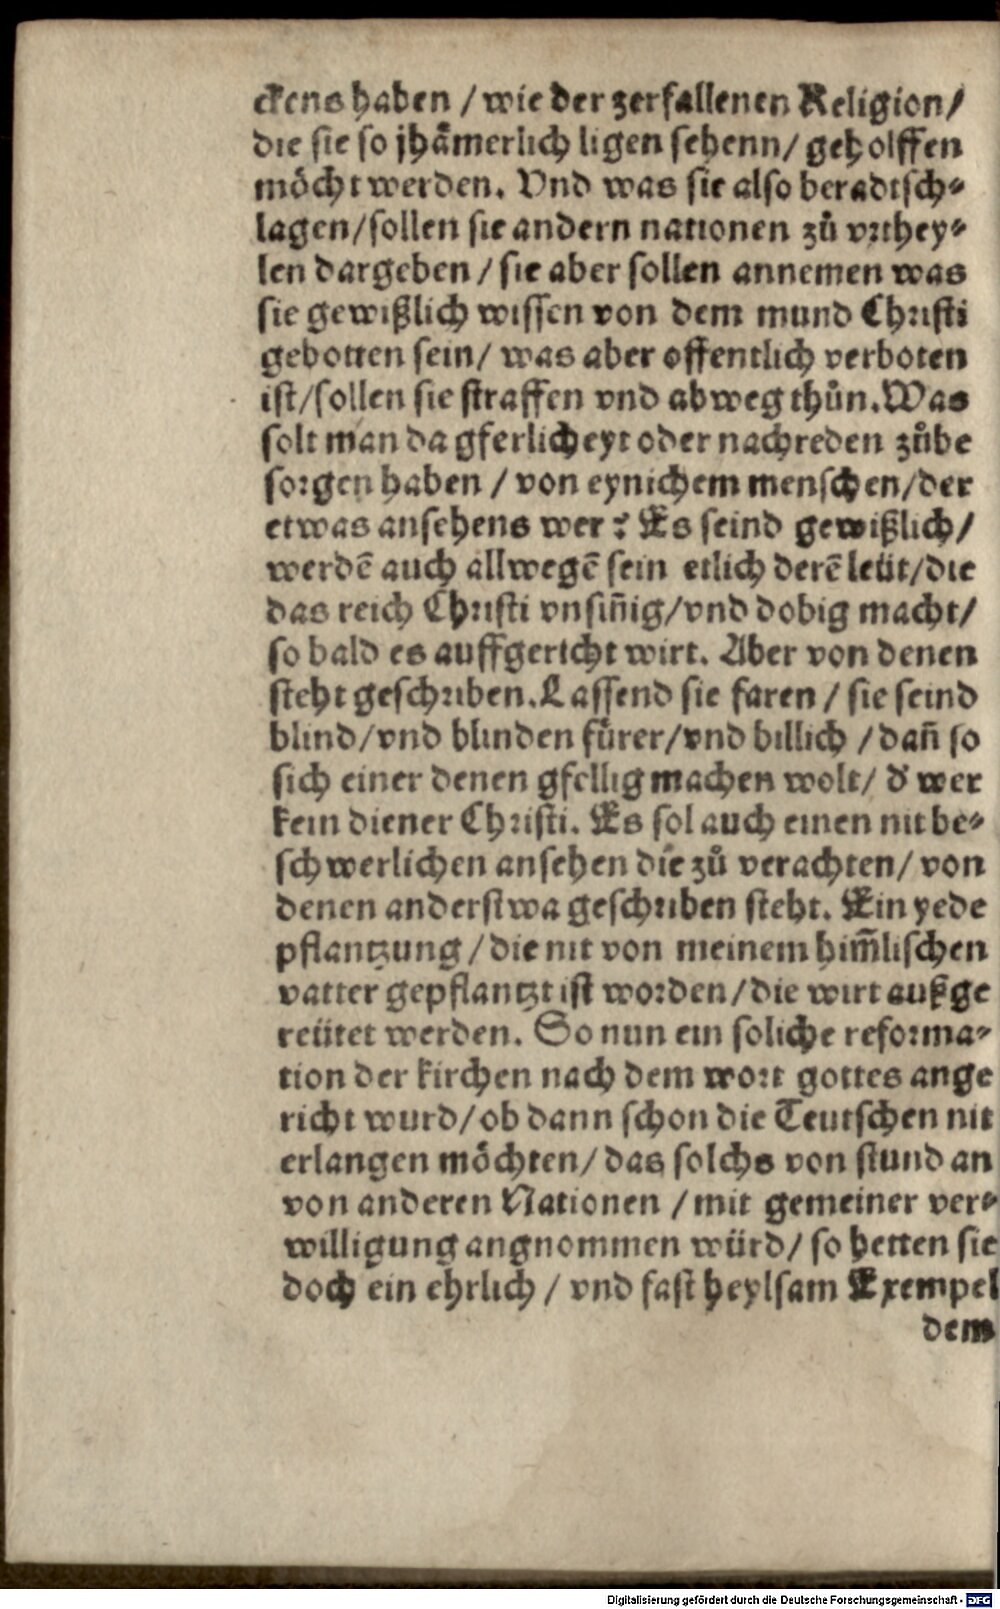 ckens haben / wie der zerfallenen Religion /
die sie so jhåmerlich ligen sehenn / geholffen
möcht werden. Vnd was sie also beradtsch⸗
lagen / sollen sie andern nationen zů vrthey⸗
len dargeben / sie aber sollen annemen was
sie gewißlich wissen von dem mund Christi
gebotten sein / was aber offentlich verboten
ist / sollen sie straffen vnd abweg thůn. Was
solt man da gferlicheyt oder nachreden zůbe
sorgen haben / von eynichem menschen / der
etwas ansehens wer? Es seind gewißlich /
werdē auch allwegē sein etlich derē leüt / die
das reich Christi vnsiñig / vnd dobig macht /
so bald es auffgericht wirt. Aber von denen
steht geschriben. Lassend sie faren / sie seind
blind / vnd blinden fürer / vnd billich / dañ so
sich einer denen gfellig machen wolt / d' wer
kein diener Christi. Es sol auch einen nit be⸗
schwerlichen ansehen die zů verachten / von
denen anderstwa geschriben steht. Ein yede
pflantzung / die nit von meinem him̃lischen
vatter gepflantzt ist worden / die wirt außge
reütet werden. So nun ein soliche reforma⸗
tion der kirchen nach dem wort gottes ange
richt wurd / ob dann schon die Teutschen nit
erlangen möchten / das solchs von stund an
von anderen Nationen / mit gemeiner ver⸗
willigung angnommen würd / so hetten sie
doch ein ehrlich / vnd fast heylsam Exempel
dem
Digitalisierung gefördert durch die Deutsche Forschungsgemeinschaft - DFG